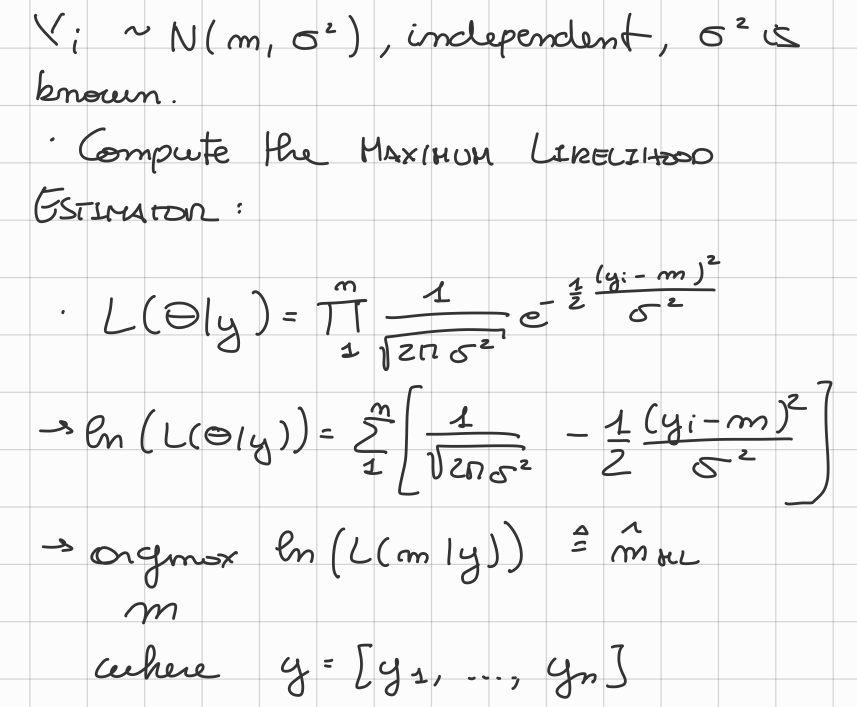 Y_i ~ N(m, σ²), independent, σ² is
known.
· Compute the MAXIMUM LIKELIHOOD
ESTIMATOR:
· L(Θ|y) = ∏_1^n 1/√(2πσ²) e^{-1/2 (y_i - m)²/σ²}
→ ln(L(Θ|y)) = ∑_1^n [1/√(2πσ²) - 1/2 (y_i - m)²/σ²]
→ argmax ln(L(m|y)) ≜ m̂_ML
m
where y = [y_1, ..., y_n]